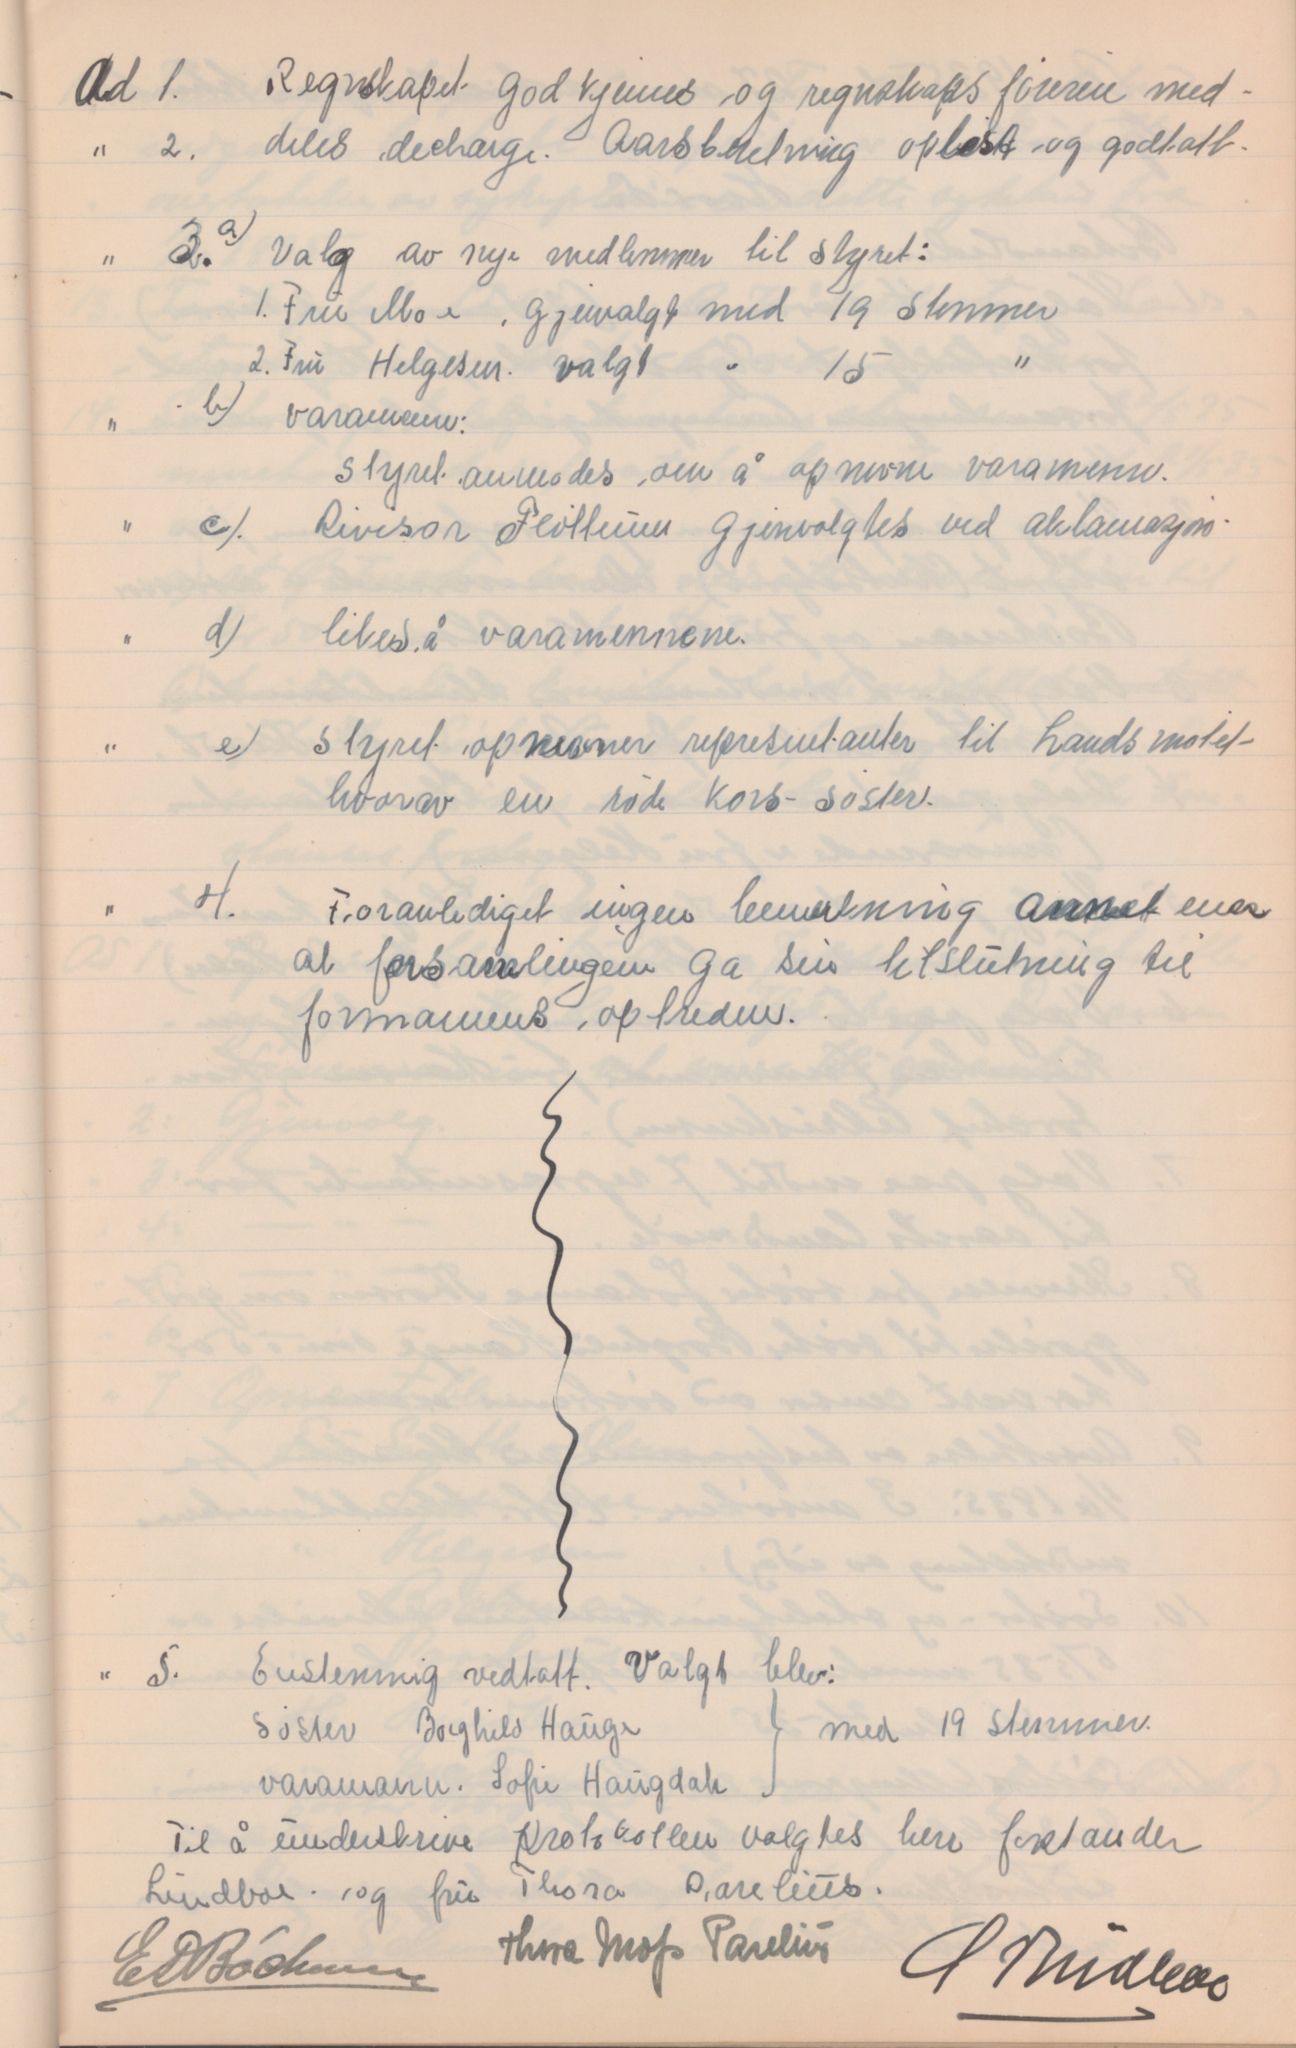 Ad 1. Regnskapet godkjennes og regnskapsföreren med-
" 2. deles decharge. Aarsberetning oplest og godtatt.
" 3. a) Valg av nye medlemmer til styret:
1. Fru Moe, gjenvalgt med 19 stemmer
2. Fru Helgesen. valgt " 15 "
" b) varamenn:
Styret anmodes om å opnevne varamenn.
" c). Revisor Flöttum gjenvalgtes ved aklamasjon.
" d) likeså varamennene.
" e) Styret opnevner representanter til Landsmötet
hvorav en röde Kors-söster.
" 4. Foranlediget ingen bemerkning annet enn
at forsamlingen ga sin tilslutning til
formannens optreden.
" 5. Enstemmig vedtatt. Valgt blev:
Söster Borghild Hauge } med 19 stemmer.
varamann. Sofie Haugdah
Til å underskrive protokollen valgtes herr forstander
Lindboe og fru Thora Parelius.
Thora Parelius